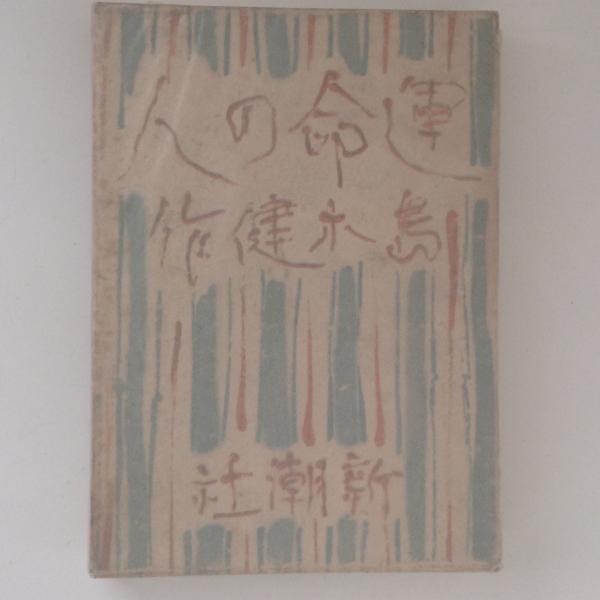 運命の人
島木健作
新潮社